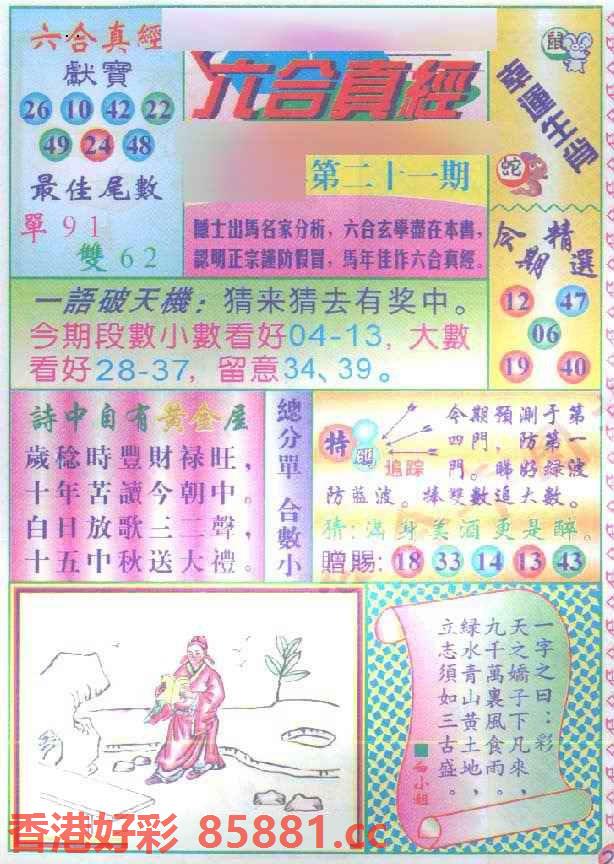 六合真經
獻寶
26 10 42 22
49 24 48
最佳尾數
單91
雙62
六合真經
第二十一期
隱士出馬名家分析，六合玄學盡在本書，
認明正宗謹防假冒，馬年佳作六合真經。
鼠
幸運生肖
蛇
今期精選
12 47
06
19 40
一語破天機：猜来猜去有奖中。
今期段數小數看好04-13，大數
看好28-37，留意34、39。
詩中自有黃金屋
歲稔時豐財禄旺，
十年苦讀今朝中。
白日放歌三二聲，
十五中秋送大禮。
總分單 合數小
特
碼
追踪
今期預測于第
四門，防第一
門。睇好绿波
防蓝波。捧雙數追大數。
猜：滿身美酒更是醉。
贈賜：18 33 14 13 43
一字之曰：彩
天之嬌子下凡來，
九千萬裏風食雨。
緑水青山黃土地，
立志須如三古盛。
小姐
香港好彩 85881.cc